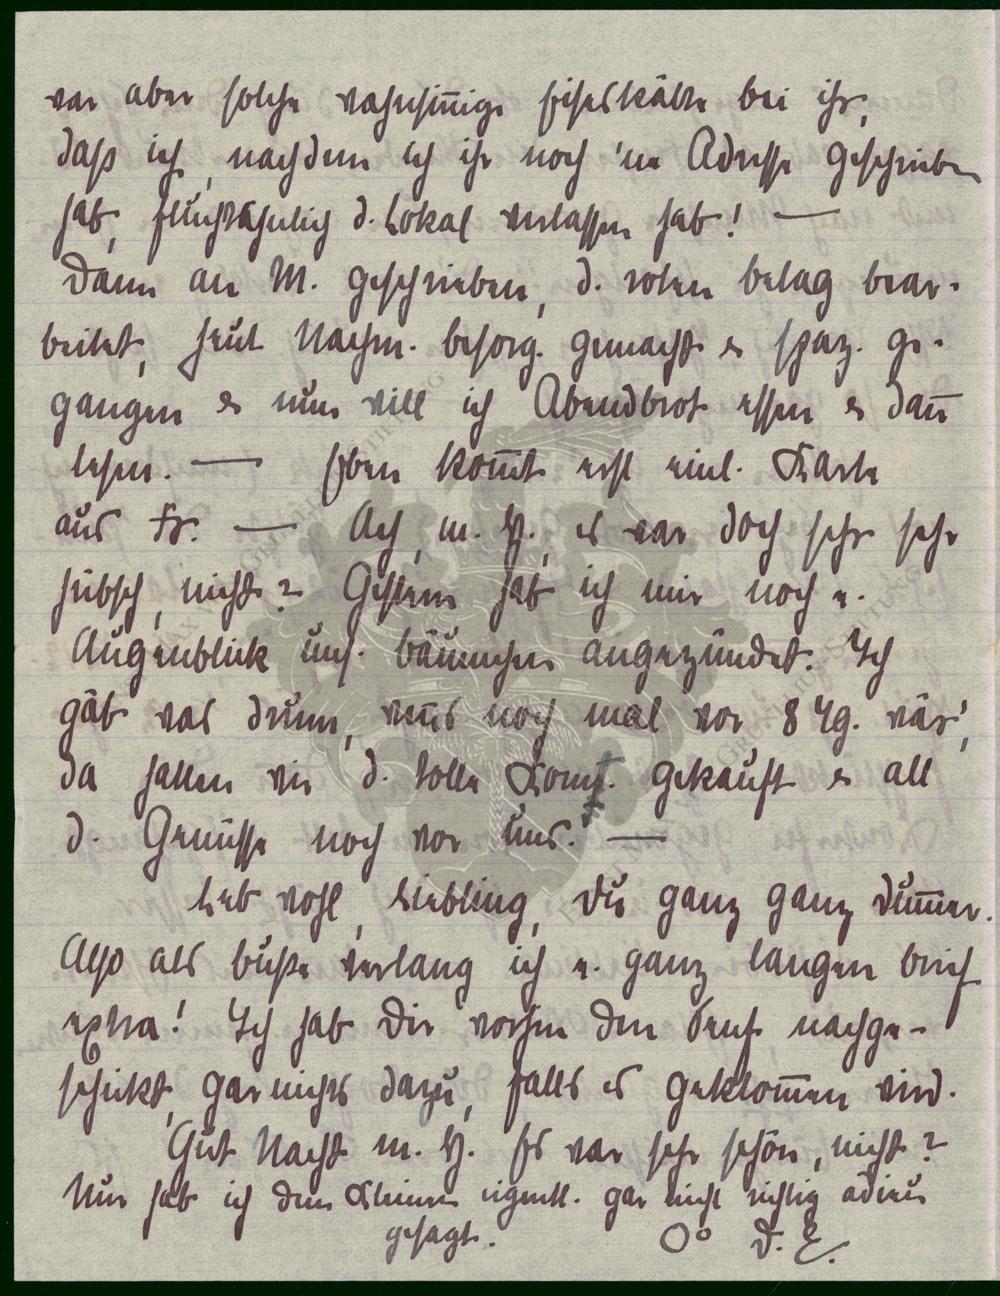 war aber solche wahnsinnige Eiseskälte bei ihr,
daß ich, nachdem ich ihr noch 'ne Adresse geschrieben
hab, fluchtähnlich d. Lokal verlassen hab! —
Dann an M. geschrieben, d. roten belag bear-
beitet, heut Nachm. besorg. gemacht & spaz. ge-
gangen & nun will ich Abendbrot essen & dann
lesen. — Eben kommt erst eine Karte
aus Fr. — Ach, m. H., es war doch sehr sehr
hübsch, nicht? Gestern hab ich mir noch e.
Augenblick uns. bäumchen angezündet. Ich
gäb was drum, wenns noch mal vor 8 Tg. wär',
da hatten wir d. tolle gekauft & all
d. Genüsse noch vor uns. —
Leb wohl, Liebling, Du ganz ganz dummer.
Also als buße verlang ich e. ganz langen brief
extra! Ich hab Dir vorhin den nachge-
schickt, garnichts dazu, falls es geklommen wird.
Gut Nacht m. H. Es war sehr schön, nicht?
Nur hab ich dem Kleinen eigentl. gar nicht richtig adieu
gesagt. D. E.